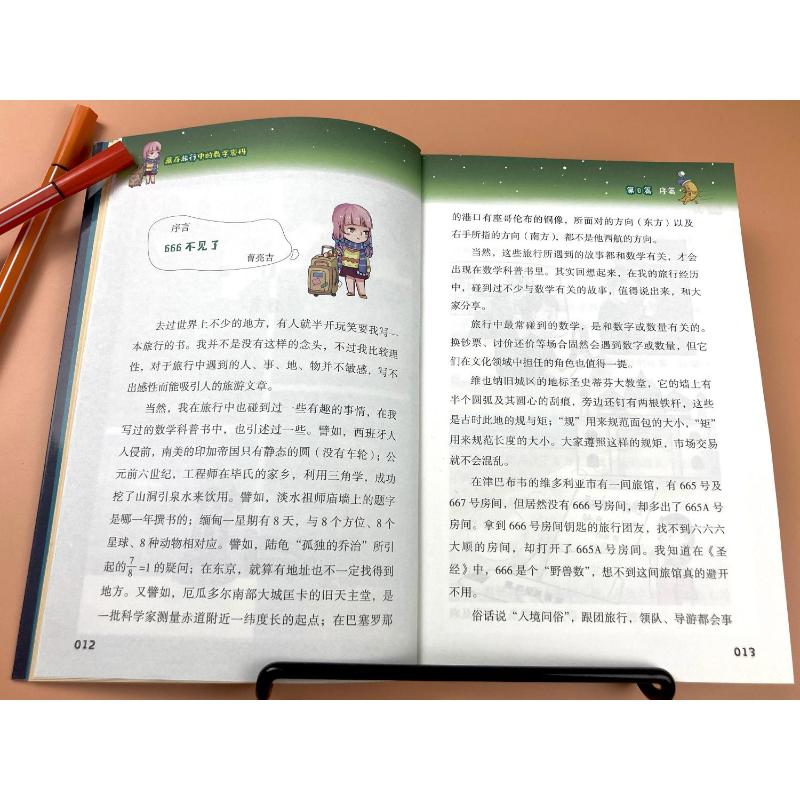 藏在旅行中的数学密码
序言
666不见了
曹亮吉
去过世界上不少的地方，有人就半开玩笑要我写一
本旅行的书。我并不是没有这样的念头，不过我比较理
性，对于旅行中遇到的人、事、地、物并不敏感，写不
出感性而能吸引人的旅游文章。
当然，我在旅行中也碰到过一些有趣的事情，在我
写过的数学科普书中，也引述过一些。譬如，西班牙人
入侵前，南美的印加帝国只有静态的圆（没有车轮）；公
元前六世纪，工程师在毕氏的家乡，利用三角学，成功
挖了山洞引泉水来饮用。譬如，淡水祖师庙墙上的题字
是哪一年撰书的；缅甸一星期有8天，与8个方位、8个
星球、8种动物相对应。譬如，陆龟“孤独的乔治”所引
起的7/8=1的疑问；在东京，就算有地址也不一定找得到
地方。又譬如，厄瓜多尔南部大城匡卡的旧天主堂，是
一批科学家测量赤道附近一纬度长的起点；在巴塞罗那
012
第0篇 序篇
的港口有座哥伦布的铜像，所面对的方向（东方）以及
右手所指的方向（南方），都不是他西航的方向。
当然，这些旅行所遇到的故事都和数学有关，才会
出现在数学科普书里。其实回想起来，在我的旅行经历
中，碰到过不少与数学有关的故事，值得说出来，和大
家分享。
旅行中最常碰到的数学，是和数字或数量有关的。
换钞票、讨价还价等场合固然会遇到数字或数量，但它
们在文化领域中担任的角色也值得一提。
维也纳旧城区的地标圣史蒂芬大教堂，它的墙上有
半个圆弧及其圆心的刮痕，旁边还钉有两根铁杆，这些
是古时此地的规与矩；“规”用来规范面包的大小，“矩”
用来规范长度的大小。大家遵照这样的规矩，市场交易
就不会混乱。
在津巴布韦的维多利亚市有一间旅馆，有665号及
667号房间，但居然没有666号房间，却多出了665A号
房间。拿到666号房间钥匙的旅行团友，找不到六六六
大顺的房间，却打开了665A号房间。我知道在《圣
经》中，666是个“野兽数”，想不到这间旅馆真的避开
不用。
俗话说“入境问俗”，跟团旅行，领队、导游都会事
013